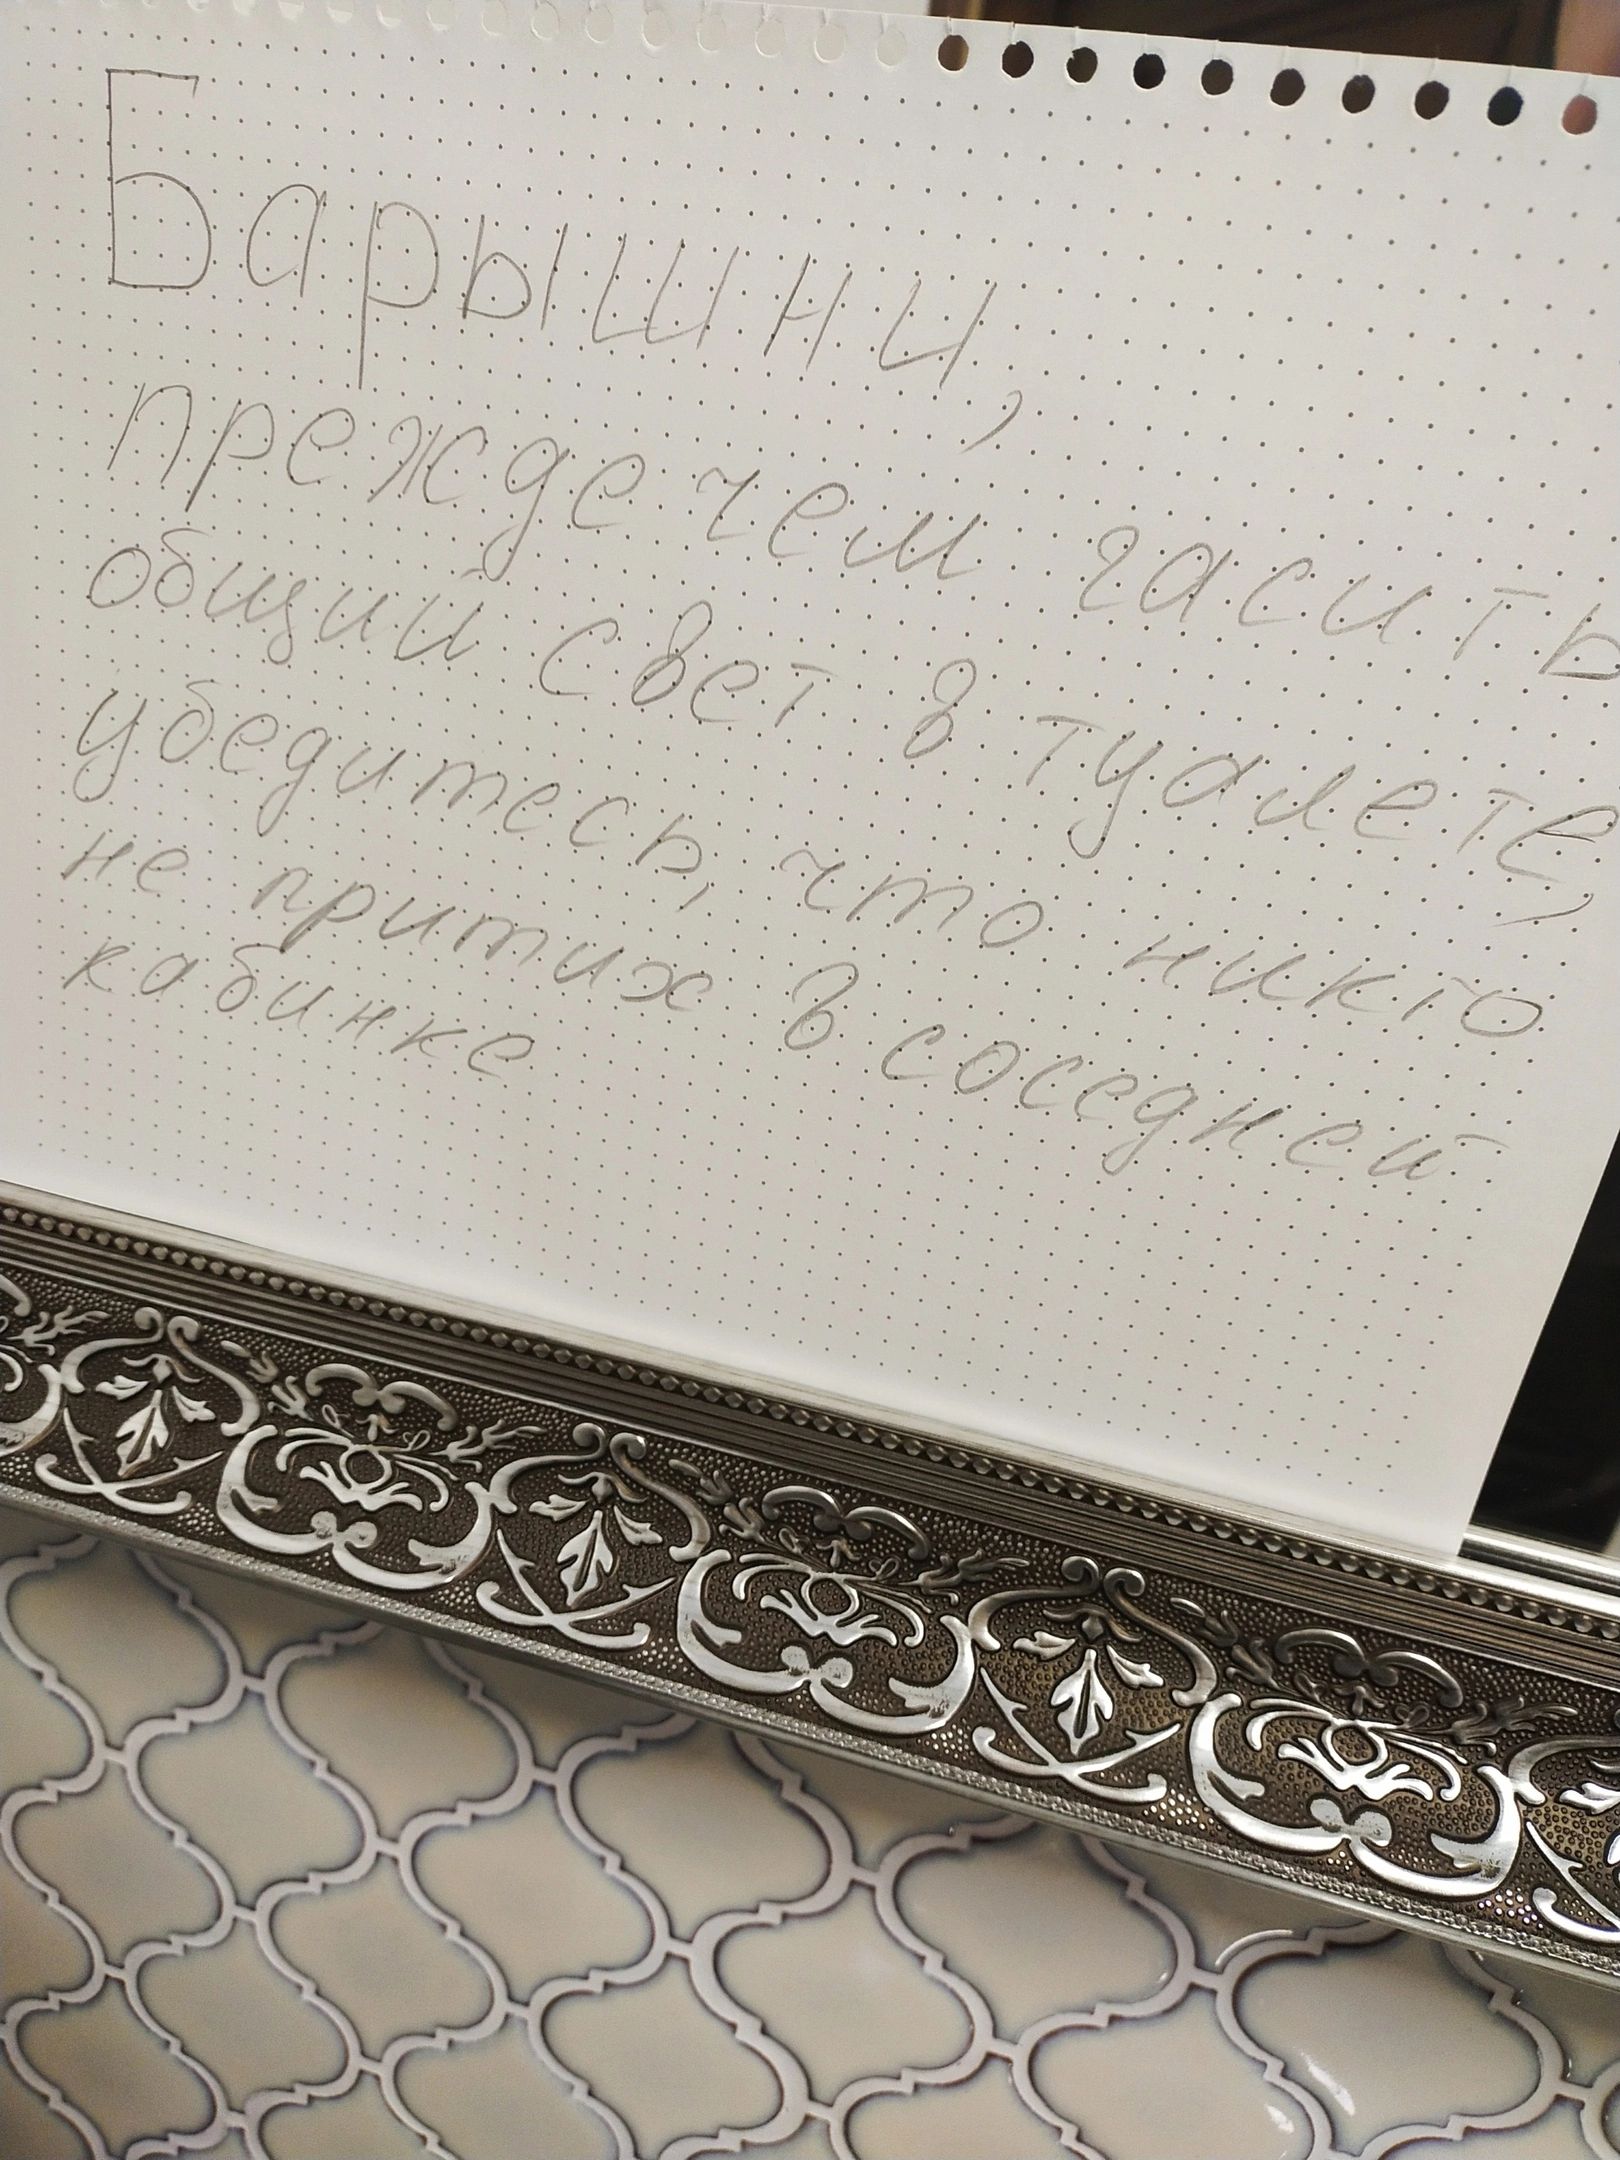 Барышни,
прежде чем гасить
общий свет в туалете,
убедитесь, что никто
не притих в соседней
кабинке